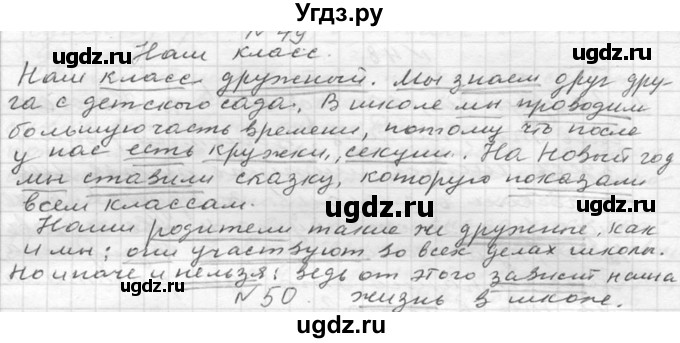 Угдз.ру
№ 49
Наш класс.
Наш класс дружный. Мы знаем друг дру-
га с детского сада. В школе мы проводим
большую часть времени, потому что после
у нас есть кружки, секции. На Новый год
мы ставили сказку, которую показали
всем классам.
Наши родители такие же дружные, как
и мы: они участвуют во всех делах школы.
Но иначе и нельзя: ведь от этого зависит наша
№ 50. жизнь в школе.
ugdz.ru ugdz.ru ugdz.ru
ugdz.ru ugdz.ru ugdz.ru
ugdz.ru ugdz.ru ugdz.ru
ugdz.ru ugdz.ru ugdz.ru